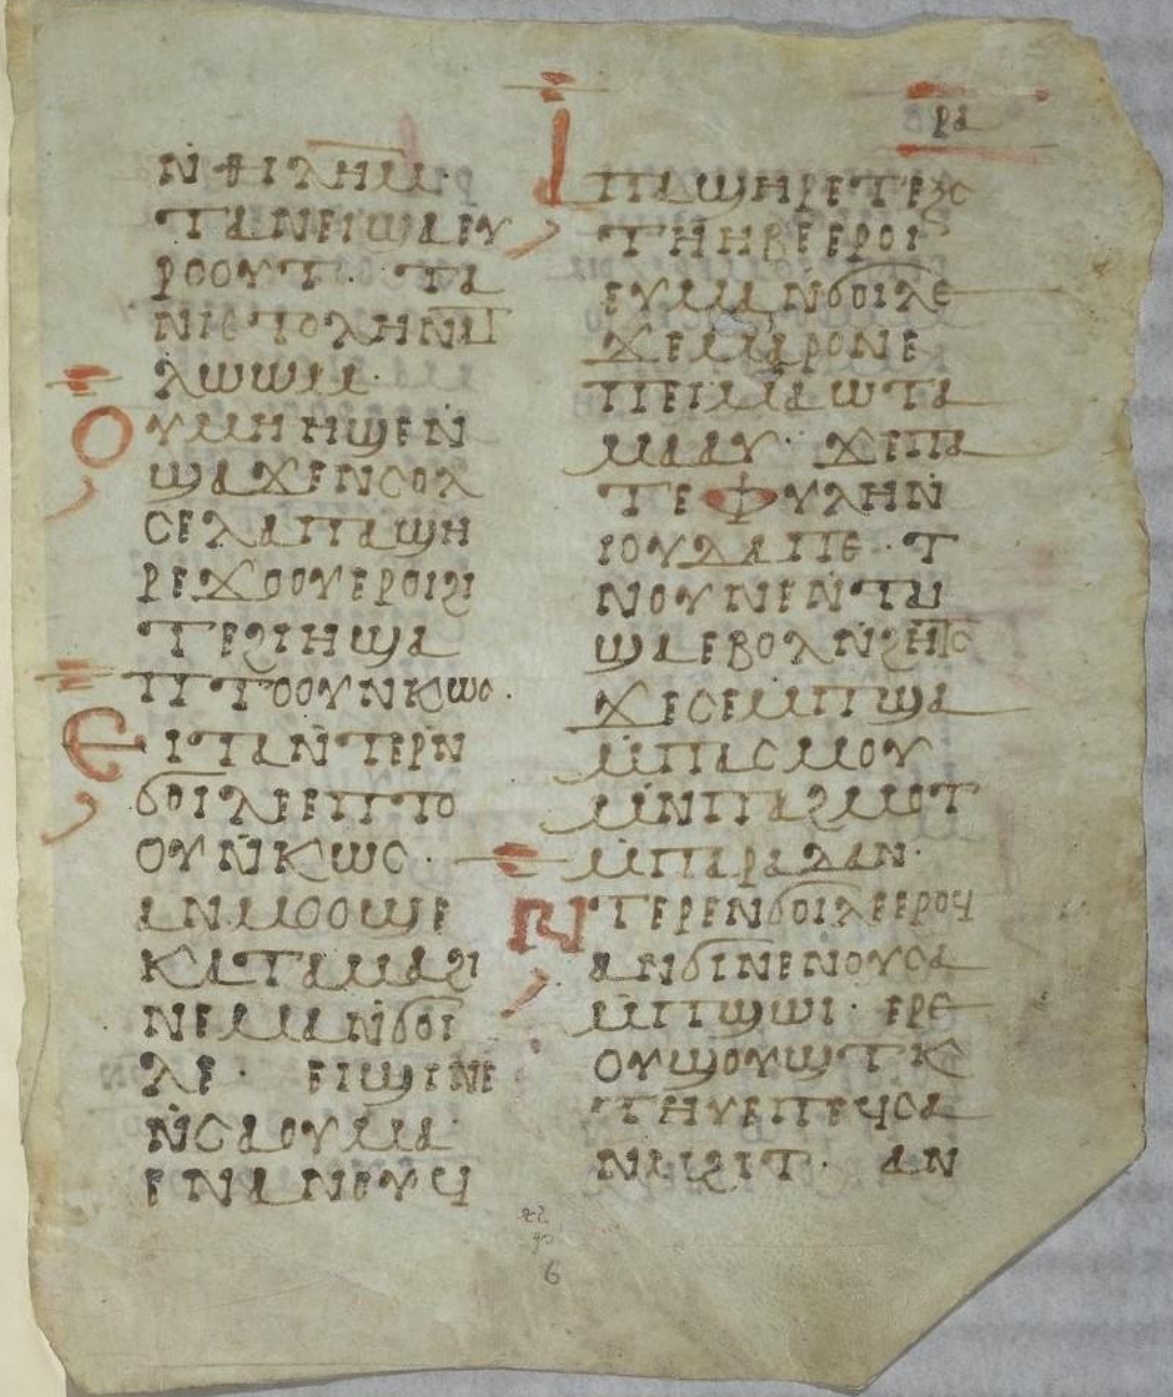 ⲣⲁ
ⲛ̇ⲑⲓⲗⲏⲙ·
ⲧⲁⲛⲉⲓϣⲁⲉⲩ
ⲣⲟⲟⲩⲧ· ⲧⲁ
ⲛⲓⲥⲧⲟⲗⲏⲛ
ⲗⲱⲱⲙ·
ⲟⲩⲙⲏⲏϣⲉⲛ̇
ϣⲁϫⲉⲛⲥⲟⲗ
ⲥⲉⲗⲁⲡⲁϣⲏ
ⲣⲉϫⲟⲟⲩⲉⲣⲟⲓϩⲓ
ⲧⲉϩⲓⲏϣⲁ
ⲡⲧⲟⲟⲩⲛⲕⲱⲥ·
ⲉⲓⲧⲁⲛ̇ⲧⲉⲣⲛ̇
ϭⲟⲓⲗⲉⲉⲡⲧⲟ
ⲟⲩⲛ̇ⲕⲱⲥ·
ⲁⲛⲙⲟⲟϣⲉ
ⲕⲁⲧⲁⲙⲁϩⲓ
ⲛⲉⲙⲁⲛ̇ϭⲟⲓ
ⲗⲉ· ⲉⲓϣⲓⲛⲉ
ⲛ̇ⲥⲁⲟⲩⲙⲁ·
ⲉⲛⲁⲛⲟⲩϥ
ⲁⲡⲁϣⲏⲣⲉⲧⲉϩⲥ
ⲧⲏⲏⲃⲉⲉⲣⲟⲓ
ⲉⲩⲙⲁⲛ̇ϭⲟⲓⲗⲉ
ϫⲉⲙⲁⲣⲟⲛⲉ
ⲡⲉⲓⲙⲁⲱⲧⲁ
ⲙⲁⲁⲩ· ϫⲉⲡⲁ
ⲧⲉⲫⲩⲗⲏⲛ̇
ⲓⲟⲩⲇⲁⲡⲉ· ⲧ
ⲛⲟⲩⲛⲉⲛ̇ⲧⲁⲓ
ϣⲁⲉⲃⲟⲗⲛ̇ϩⲏⲧⲥ
ϫⲉⲥⲉⲙⲡϣⲁ
ⲙ̇ⲡⲁⲥⲙⲟⲩ
ⲙⲛ̇ⲡⲁϩⲙⲟⲧ
ⲙ̇ⲡⲁⲣⲁⲗⲁⲛ·
ⲛ̇ⲧⲉⲣⲉⲛϭⲟⲓⲗⲉⲉⲣⲟϥ
ⲁⲛϭⲓⲛⲉⲛⲟⲩⲥⲁ
ⲙ̇ⲡϣⲱⲓ· ⲉⲣⲉ
ⲟⲩϣⲟⲩϣⲧⲕ
ⲧⲏⲩⲉⲡⲉϥⲥⲁ
ⲛⲁϩⲓⲧ· ⲁⲛ
22
90
6